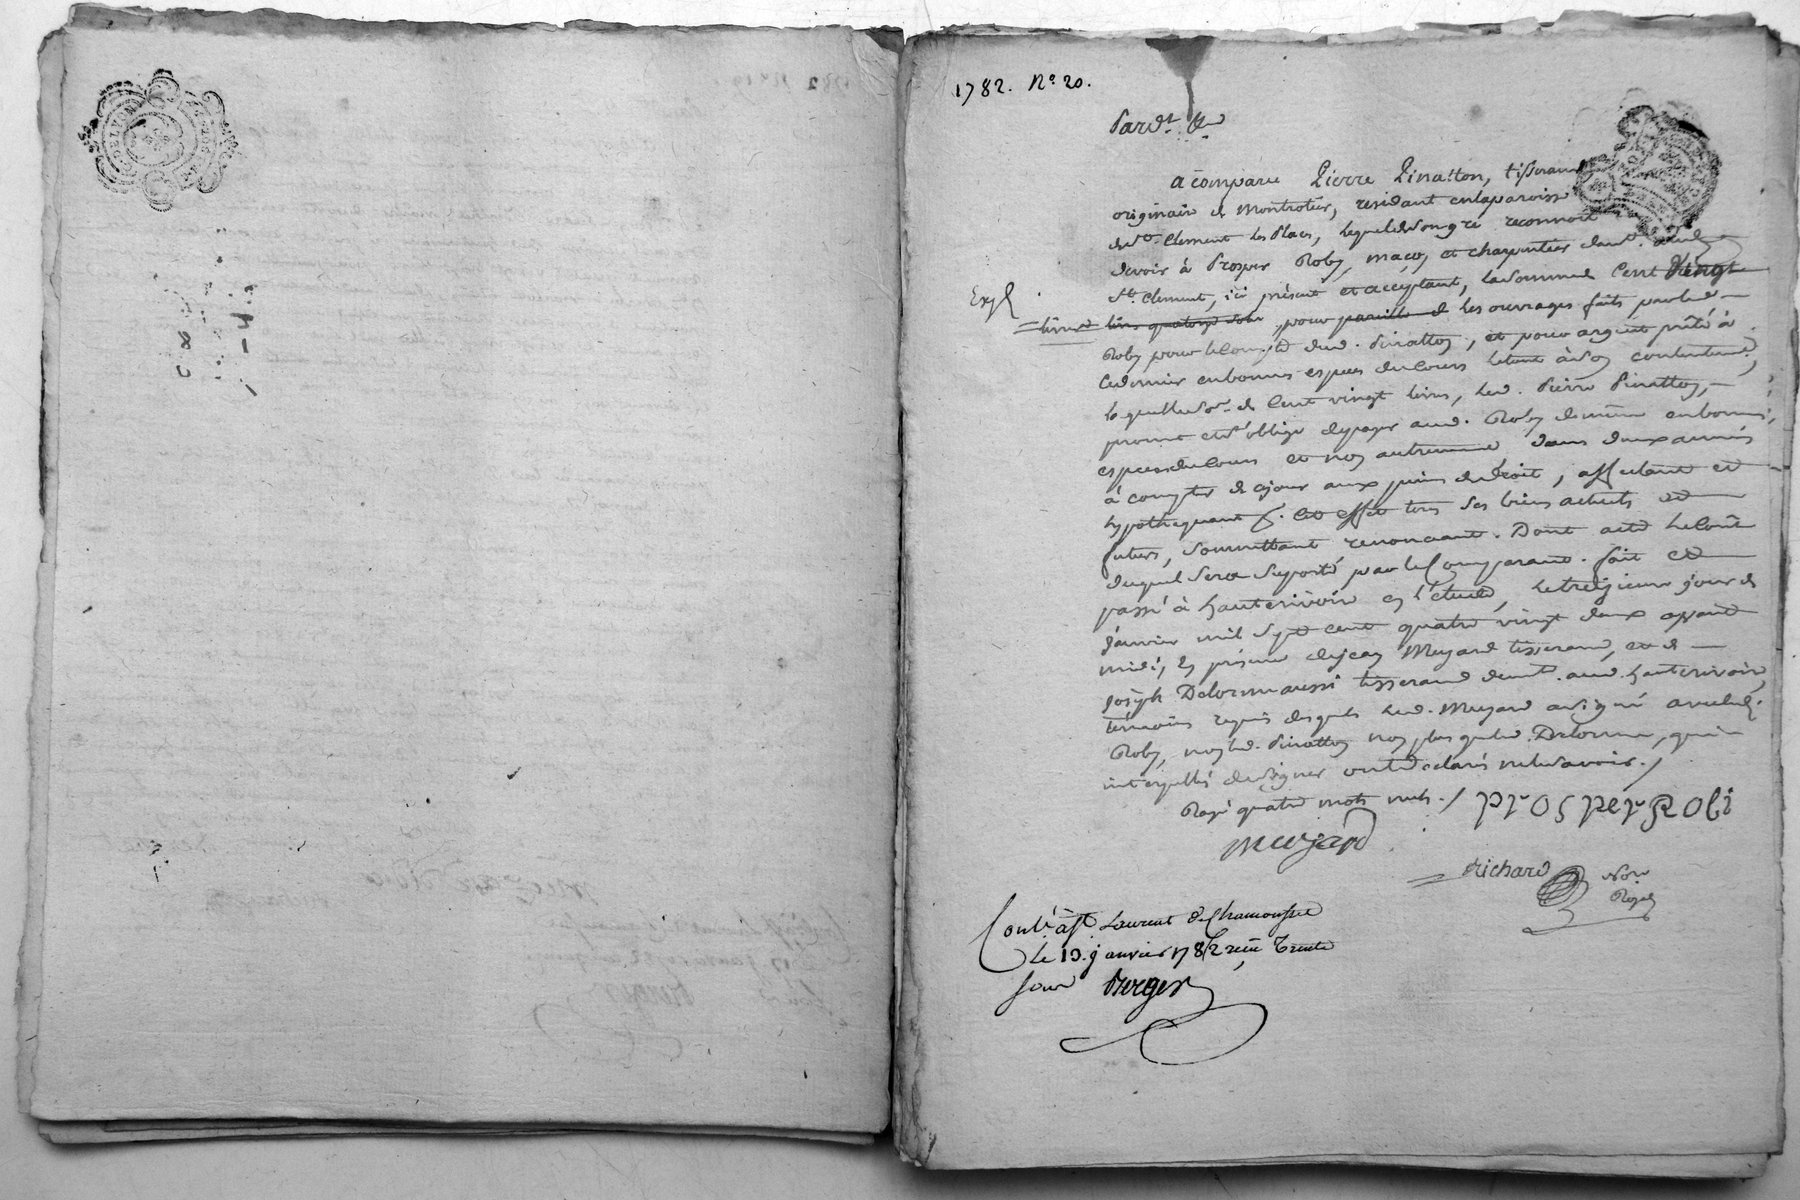 1782. N.o 20.
Pardt. &a
a comparu Pierre Pinatton, tisserand
originaire de Montrotier, residant en la paroisse
de St. Clement les Places, lequel de son gré reconnoit
devoir à Prosper Roby, maçon et charpentier demt. aud.
St. Clement, ici présent et acceptant, la somme de Cent vingt
Expé
livres livres quatorze sols, pour pareille de les ouvrages faits par led.
Roby pour le compte dud. Pinatton, et pour argent prêté à
ce dernier en bonnes especes du cours le tout à son contentement,
laquelle so.e de Cent vingt livres, led. Pierre Pinatton,
promet et s'oblige de payer aud. Roby de même en bonnes
especes du cours et non autrement, dans deux années
à compter de ce jour aux peines de droit, affectant et
hypothequant p. cet effet tous ses biens actuels et
futurs, soumettant renonceant. Dont acte le coût
duquel sera suporté par le Comparant. fait et
passé à hauterivoire en l'étude, le treizieme jour de
Janvier mil sept cent quatre vingt deux avant
midi, en présence de jean Muzard tisserand, et de
joseph Delorme aussi tisserand demt. aud. hauterivoire,
témoins requis desquels led. Muzard a signé avec led.
Roby, non led. Pinatton non plus que led. Delorme, qui
interpellés de signer ont déclarés ne le savoir./
Rayé quatre mots nuls./
prosper Robi
muzard
Richard
Nore
Royal
Contlé à St Laurent de Chamousset
le 13. janvier 1782 reçu Trente
sous Berger